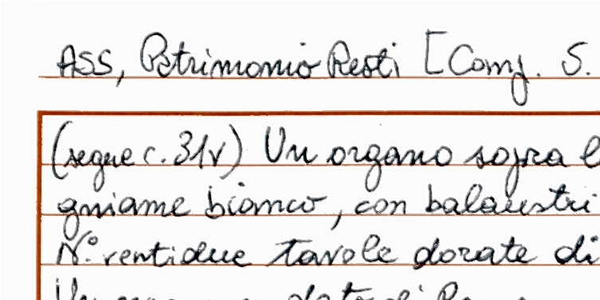 ASS, Patrimonio Resti [Comg. S.
(segue c. 31v) Un organo sopra l
gniame bianco, con balaustri
N.° ventidue tavole dorate di
Un